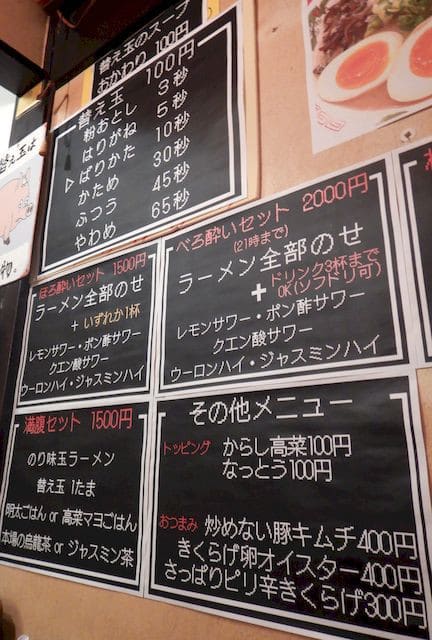 替え玉のスープ
おかわり 100円
替え玉 100円
粉おとし 3秒
はりがね 5秒
▷ばりかた 10秒
かため 30秒
ふつう 45秒
やわめ 65秒
替え玉は
物。
ほろ酔いセット 1500円
ラーメン全部のせ
+ いずれか1杯
レモンサワー・ポン酢サワー
クエン酸サワー
ウーロンハイ・ジャスミンハイ
べろ酔いセット 2000円
(21時まで)
ラーメン全部のせ
+ ドリンク3杯まで
OK(ソフドリ可)
レモンサワー・ポン酢サワー
クエン酸サワー
ウーロンハイ・ジャスミンハイ
満腹セット 1500円
のり味玉ラーメン
替え玉 1たま
明太ごはん or 高菜マヨごはん
本場の烏龍茶 or ジャスミン茶
その他メニュー
トッピング からし高菜100円
なっとう100円
おつまみ 炒めない豚キムチ400円
きくらげ卵オイスター400円
さっぱりピリ辛きくらげ300円